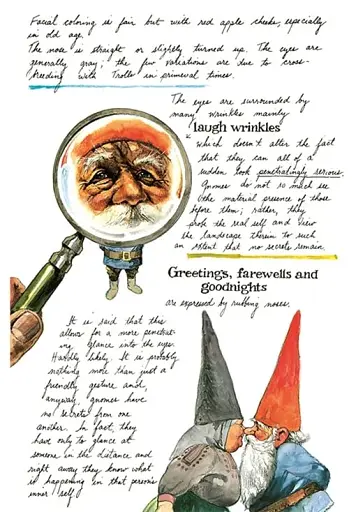 Facial coloring is fair but with red apple cheeks, especially
in old age.
The nose is straight or slightly turned up. The eyes are
generally gray; the few variations are due to cross-
breeding with Trolls in primeval times.
The eyes are surrounded by
many wrinkles mainly
laugh wrinkles
which doesn't alter the fact
that they can all of a
sudden look penetratingly serious.
Gnomes do not so much see
the material presence of those
before them; rather, they
probe the real self and view
the landscape therein to such
an extent that no secrets remain.
Greetings, farewells and
goodnights
are expressed by rubbing noses.
It is said that this
allows for a more penetrat-
ing glance into the eyes.
Hardly likely. It is probably
nothing more than just a
friendly gesture and,
anyway, gnomes have
no secrets from one
another. In fact, they
have only to glance at
someone in the distance and
right away they know what
is happening in that person's
inner self